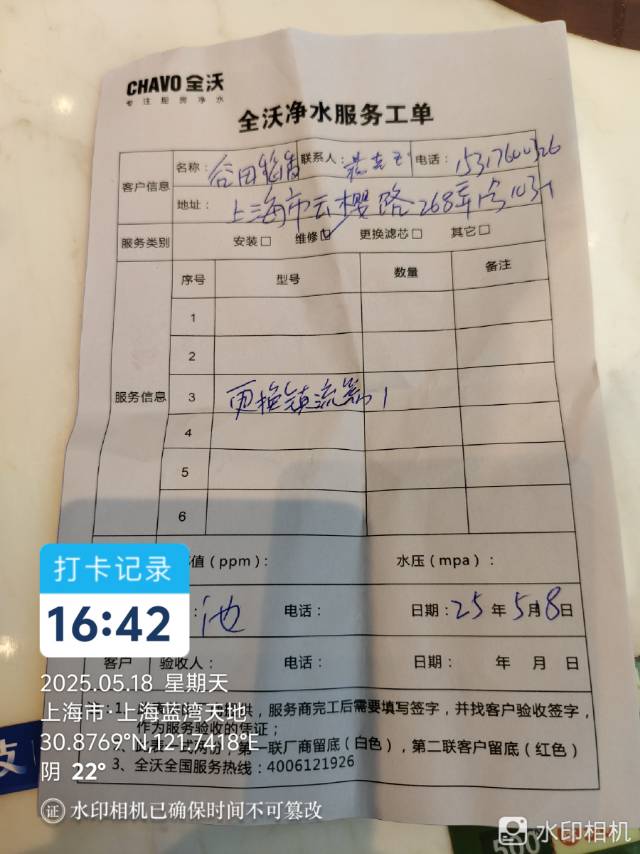 CHAVO 全沃
专注厨房净水
全沃净水服务工单
客户信息 名称: 谷田稻香 联系人: 电话:
地址: 上海市云樱路268弄
服务类别 安装□ 维修☑ 更换滤芯□ 其它□
服务信息 序号 型号 数量 备注
1
2
3 更换镇流器 1
4
5
6
值(ppm): 水压(mpa):
池 电话: 日期: 25年5月8日
客户 验收人: 电话: 日期: 年 月 日
服务商完工后需要填写签字,并找客户验收签字,
作为服务验收的凭证;
第一联厂商留底(白色),第二联客户留底(红色)
3、全沃全国服务热线:4006121926
打卡记录
16:42
2025.05.18 星期天
上海市·上海蓝湾天地
30.8769°N,121.7418°E
阴 22°
证 水印相机已确保时间不可篡改
水印相机